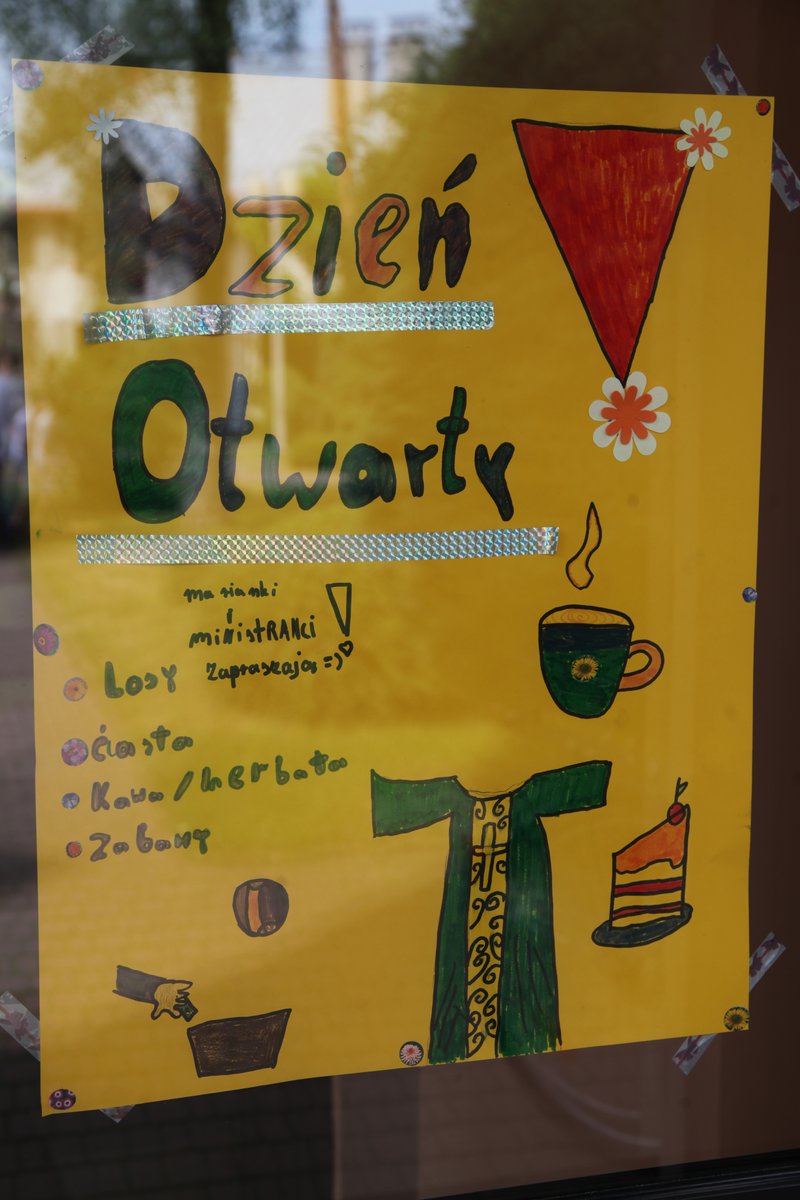 Dzień
Otwarty
marianki
i
ministRANci
zapraszają =)
Losy
Ciasta
Kawa/herbata
Zabawy